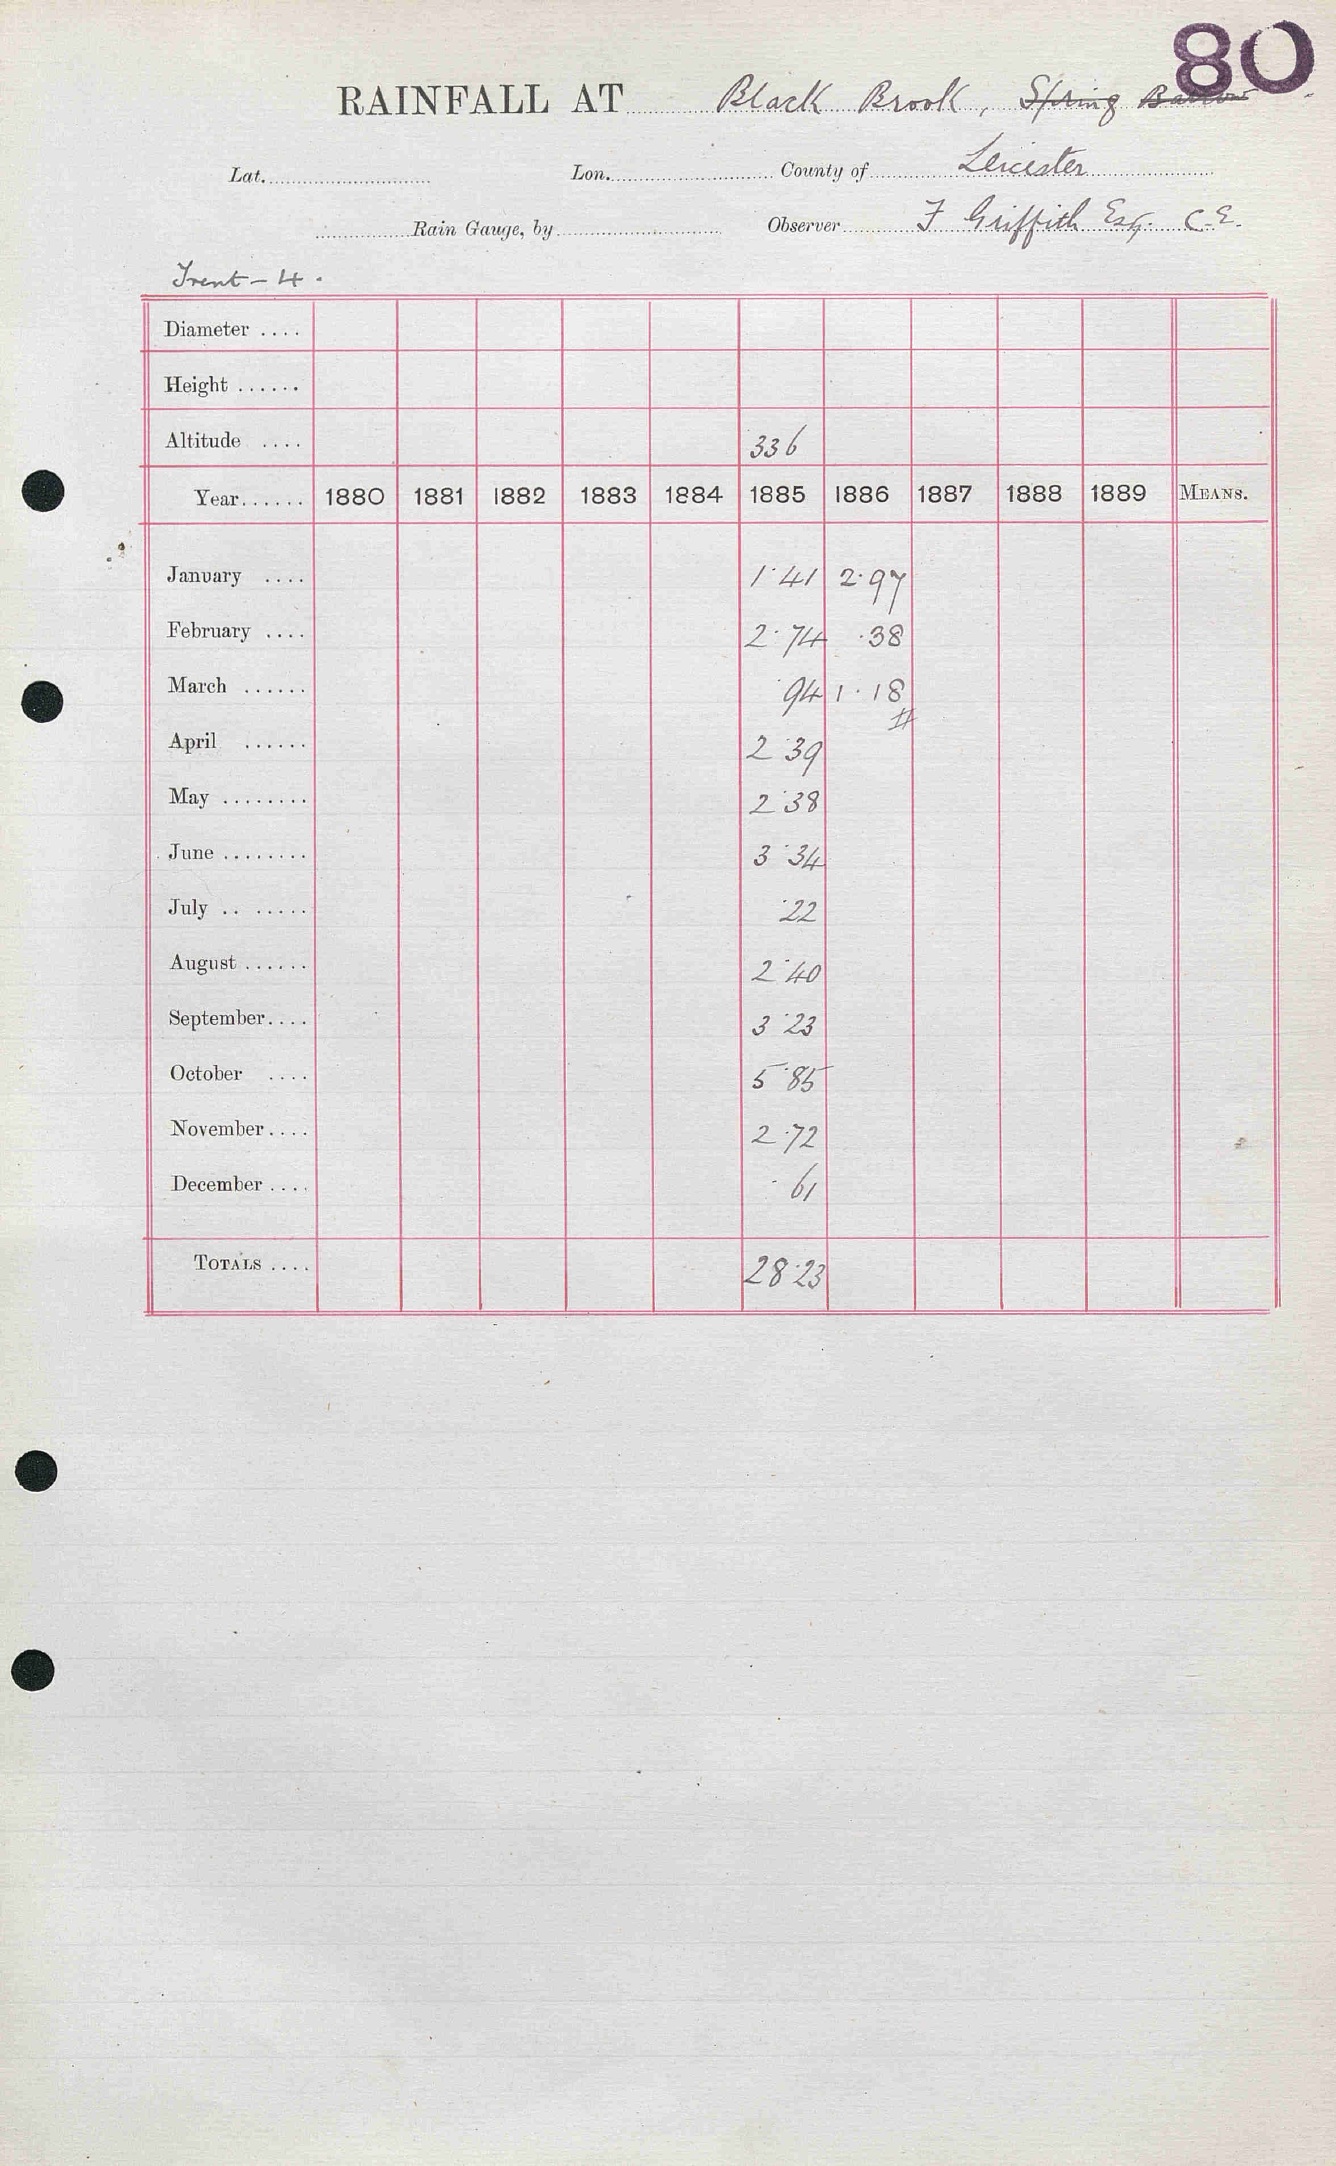 80
RAINFALL AT Black Brook, Spring Barrow
Lat. Lon. County of Leicester
Rain Gauge, by Observer F Griffith Esq. C.E.
Trent - 4.
Diameter ....
Height ......
Altitude .... 336
Year...... 1880 1881 1882 1883 1884 1885 1886 1887 1888 1889 MEANS.
January .... 1·41 2·97
February .... 2·74 ·38
March ...... 94 1·18
April ...... 2·39
May ........ 2·38
June ........ 3·34
July .. ...... ·22
August ...... 2·40
September.... 3·23
October .... 5·85
November.... 2·72
December .... ·61
TOTALS .... 28·23